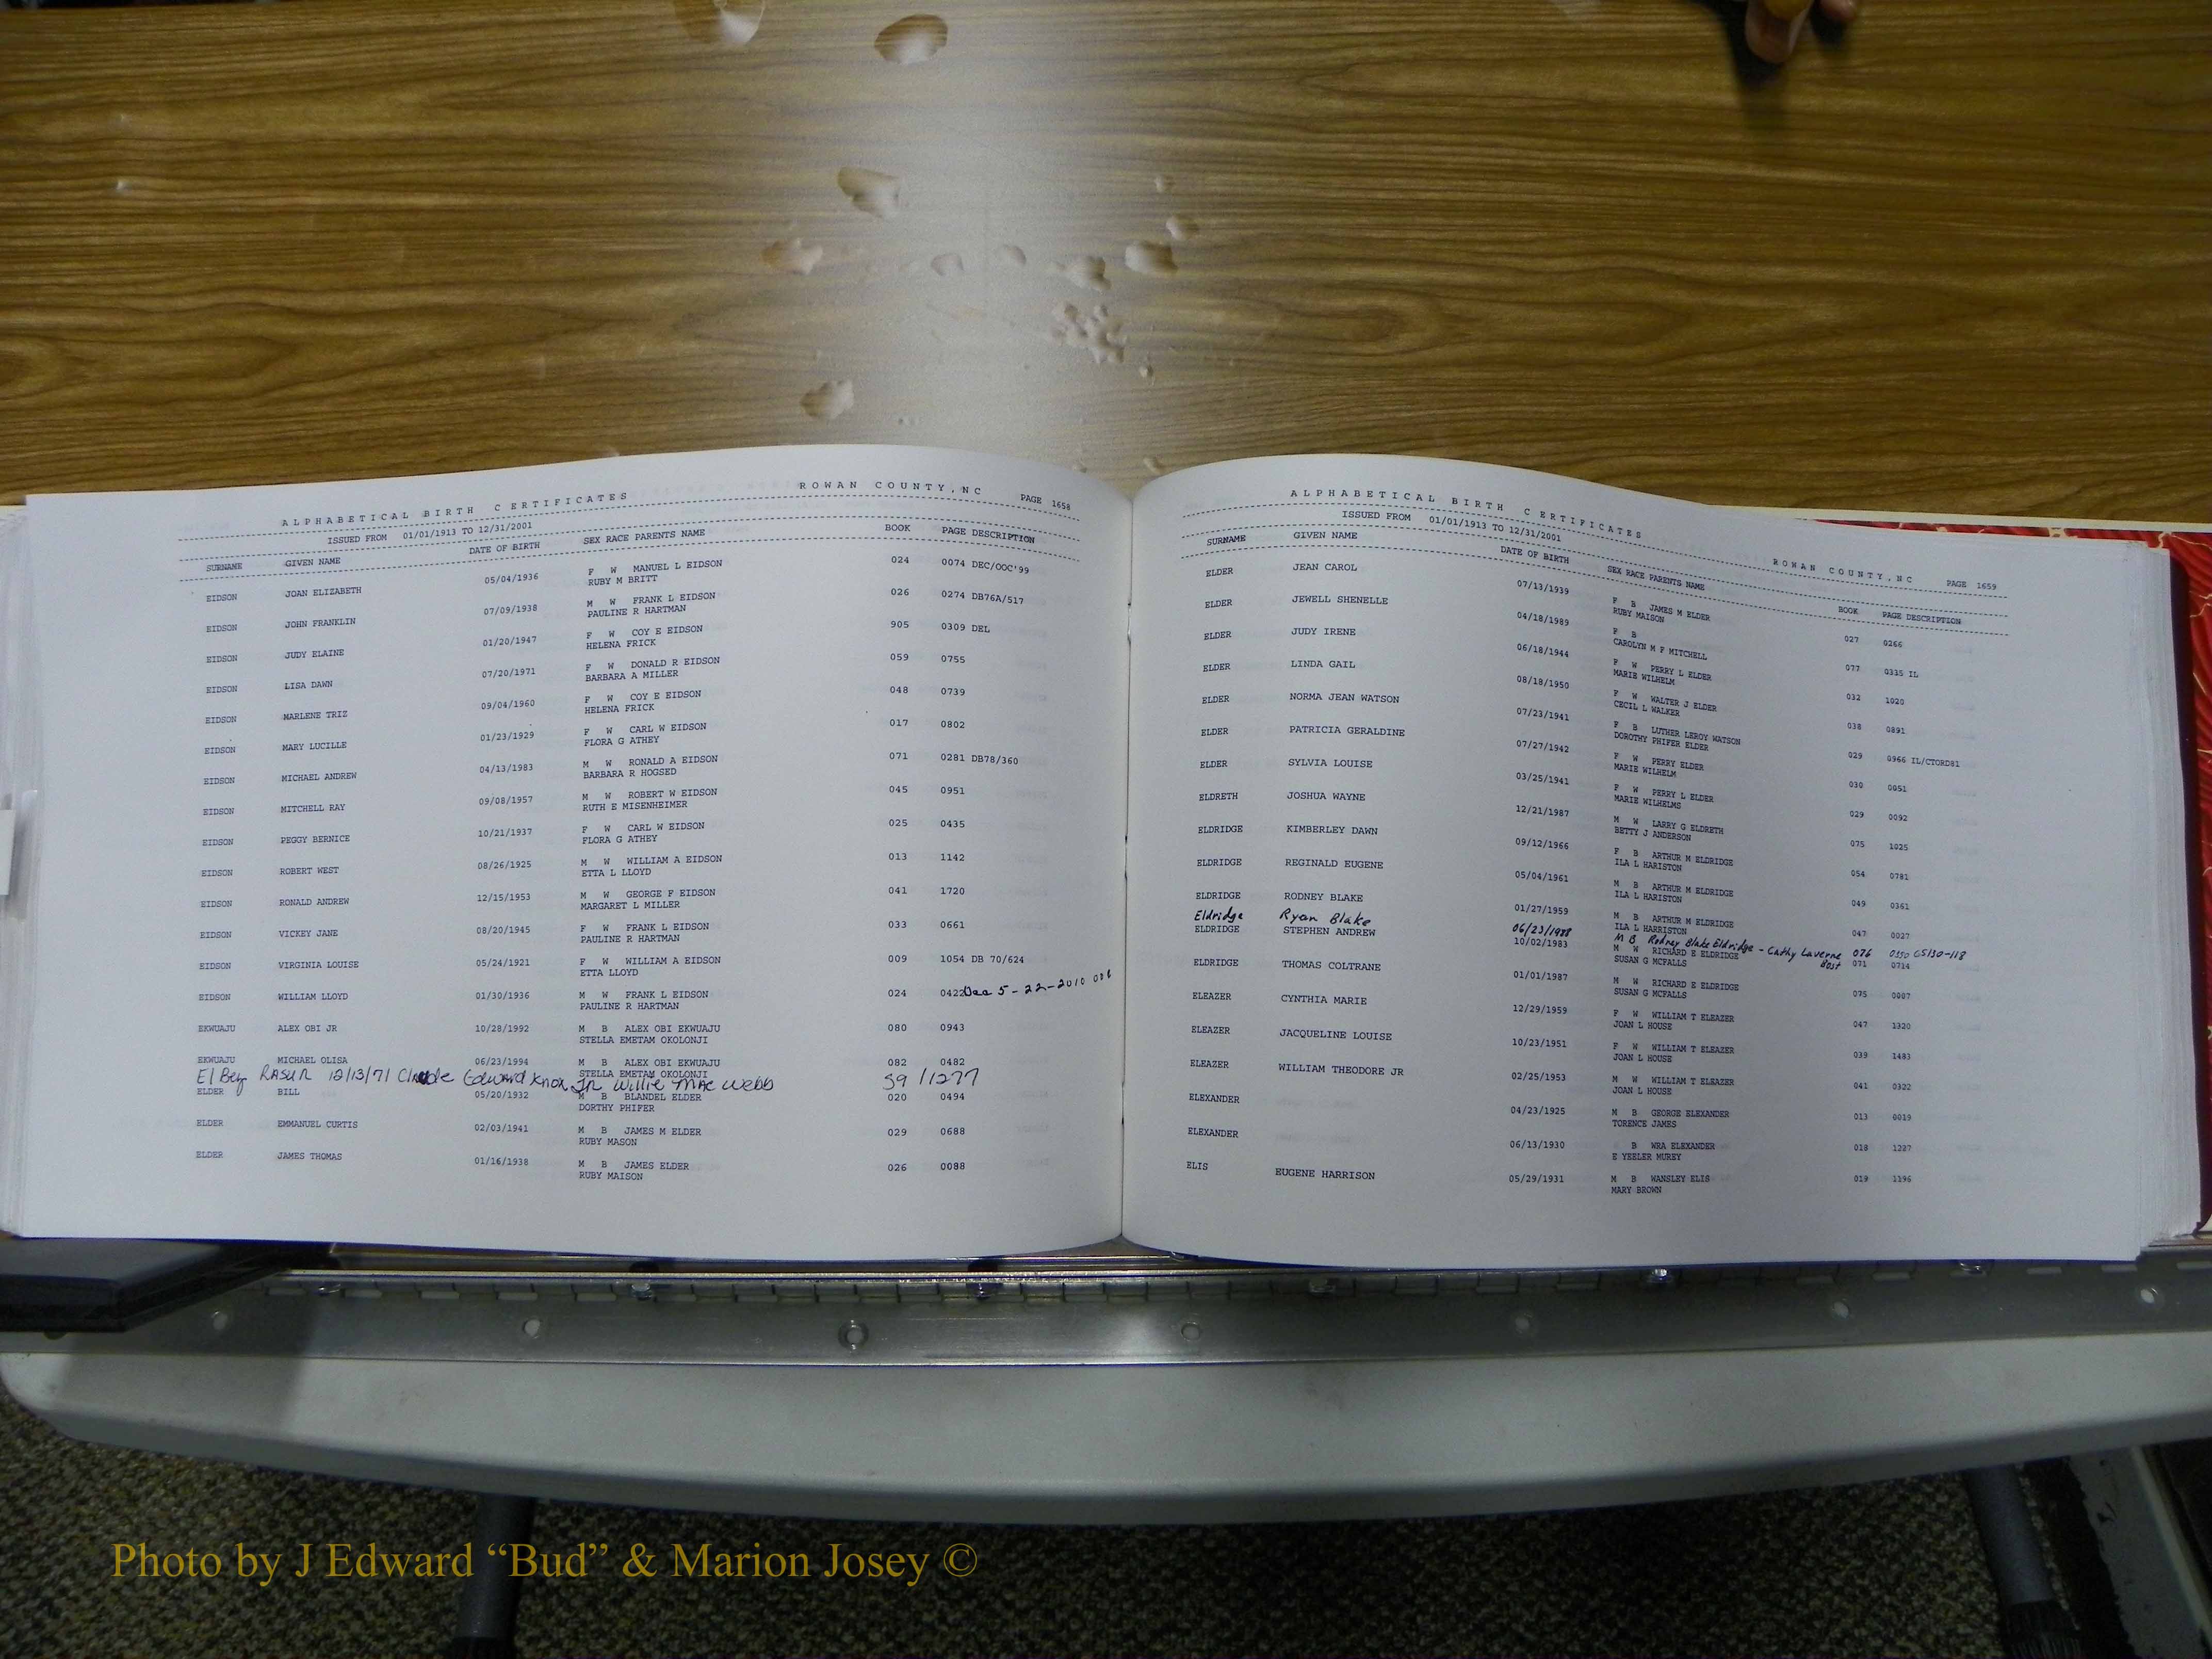 ALPHABETICAL BIRTH CERTIFICATES ROWAN COUNTY, NC PAGE 1658
ISSUED FROM 01/01/1913 TO 12/31/2001
SURNAME GIVEN NAME DATE OF BIRTH SEX RACE PARENTS NAME BOOK PAGE DESCRIPTION
EIDSON JOAN ELIZABETH 05/04/1936 F W MANUEL L EIDSON 024 0074 DEC/OOC'99
RUBY M BRITT
EIDSON JOHN FRANKLIN 07/09/1938 M W FRANK L EIDSON 026 0274 DB76A/517
PAULINE R HARTMAN
EIDSON JUDY ELAINE 01/20/1947 F W COY E EIDSON 905 0309 DEL
HELENA FRICK
EIDSON LISA DAWN 07/20/1971 F W DONALD R EIDSON 059 0755
BARBARA A MILLER
EIDSON MARLENE TRIZ 09/04/1960 F W COY E EIDSON 048 0739
HELENA FRICK
EIDSON MARY LUCILLE 01/23/1929 F W CARL W EIDSON 017 0802
FLORA G ATHEY
EIDSON MICHAEL ANDREW 04/13/1983 M W RONALD A EIDSON 071 0281 DB78/360
BARBARA R HOGSED
EIDSON MITCHELL RAY 09/08/1957 M W ROBERT W EIDSON 045 0951
RUTH E MISENHEIMER
EIDSON PEGGY BERNICE 10/21/1937 F W CARL W EIDSON 025 0435
FLORA G ATHEY
EIDSON ROBERT WEST 08/26/1925 M W WILLIAM A EIDSON 013 1142
ETTA L LLOYD
EIDSON RONALD ANDREW 12/15/1953 M W GEORGE F EIDSON 041 1720
MARGARET L MILLER
EIDSON VICKEY JANE 08/20/1945 F W FRANK L EIDSON 033 0661
PAULINE R HARTMAN
EIDSON VIRGINIA LOUISE 05/24/1921 F W WILLIAM A EIDSON 009 1054 DB 70/624
ETTA LLOYD
EIDSON WILLIAM LLOYD 01/30/1936 M W FRANK L EIDSON 024 0422 Dec 5-22-2010
PAULINE R HARTMAN
EKWUAJU ALEX OBI JR 10/28/1992 M B ALEX OBI EKWUAJU 080 0943
STELLA EMETAM OKOLONJI
EKWUAJU MICHAEL OLISA 06/23/1994 M B ALEX OBI EKWUAJU 082 0482
STELLA EMETAM OKOLONJI
El Bey RASUR 12/13/71 Claude Edward Knox Jr Willie Mac Webb 59 /1277
ELDER BILL 05/20/1932 M B BLANDEL ELDER 020 0494
DORTHY PHIFER
ELDER EMMANUEL CURTIS 02/03/1941 M B JAMES M ELDER 029 0688
RUBY MASON
ELDER JAMES THOMAS 01/16/1938 M B JAMES ELDER 026 0088
RUBY MAISON
ALPHABETICAL BIRTH CERTIFICATES ROWAN COUNTY, NC PAGE 1659
ISSUED FROM 01/01/1913 TO 12/31/2001
SURNAME GIVEN NAME DATE OF BIRTH SEX RACE PARENTS NAME BOOK PAGE DESCRIPTION
ELDER JEAN CAROL 07/13/1939 F B JAMES M ELDER 027 0266
RUBY MAISON
ELDER JEWELL SHENELLE 04/18/1989 F B 077 0335 IL
CAROLYN M F MITCHELL
ELDER JUDY IRENE 06/18/1944 F W PERRY L ELDER 032 1020
MARIE WILHELM
ELDER LINDA GAIL 08/18/1950 F W WALTER J ELDER 038 0891
CECIL L WALKER
ELDER NORMA JEAN WATSON 07/23/1941 F B LUTHER LEROY WATSON 029 0966 IL/CTORD81
DOROTHY PHIFER ELDER
ELDER PATRICIA GERALDINE 07/27/1942 F W PERRY ELDER 030 0051
MARIE WILHELM
ELDER SYLVIA LOUISE 03/25/1941 F W PERRY L ELDER 029 0092
MARIE WILHELMS
ELDRETH JOSHUA WAYNE 12/21/1987 M W LARRY G ELDRETH 075 1025
BETTY J ANDERSON
ELDRIDGE KIMBERLEY DAWN 09/12/1966 F B ARTHUR M ELDRIDGE 054 0781
ILA L HARISTON
ELDRIDGE REGINALD EUGENE 05/04/1961 M B ARTHUR M ELDRIDGE 049 0361
ILA L HARISTON
ELDRIDGE RODNEY BLAKE 01/27/1959 M B ARTHUR M ELDRIDGE 047 0027
ILA L HARRISTON
Eldridge Ryan Blake 06/23/1988 M B Rodney Blake Eldridge - Cathy Laverne Bost 076 0350 CS130-118
ELDRIDGE STEPHEN ANDREW 10/02/1983 M W RICHARD E ELDRIDGE 071 0714
SUSAN G MCFALLS
ELDRIDGE THOMAS COLTRANE 01/01/1987 M W RICHARD E ELDRIDGE 075 0007
SUSAN G MCFALLS
ELEAZER CYNTHIA MARIE 12/29/1959 F W WILLIAM T ELEAZER 047 1320
JOAN L HOUSE
ELEAZER JACQUELINE LOUISE 10/23/1951 F W WILLIAM T ELEAZER 039 1483
JOAN L HOUSE
ELEAZER WILLIAM THEODORE JR 02/25/1953 M W WILLIAM T ELEAZER 041 0322
JOAN L HOUSE
ELEXANDER 04/23/1925 M B GEORGE ELEXANDER 013 0019
TORENCE JAMES
ELEXANDER 06/13/1930 B WRA ELEXANDER 018 1227
E YEELER MUREY
ELIS EUGENE HARRISON 05/29/1931 M B WANSLEY ELIS 019 1196
MARY BROWN
Photo by J Edward “Bud” & Marion Josey ©